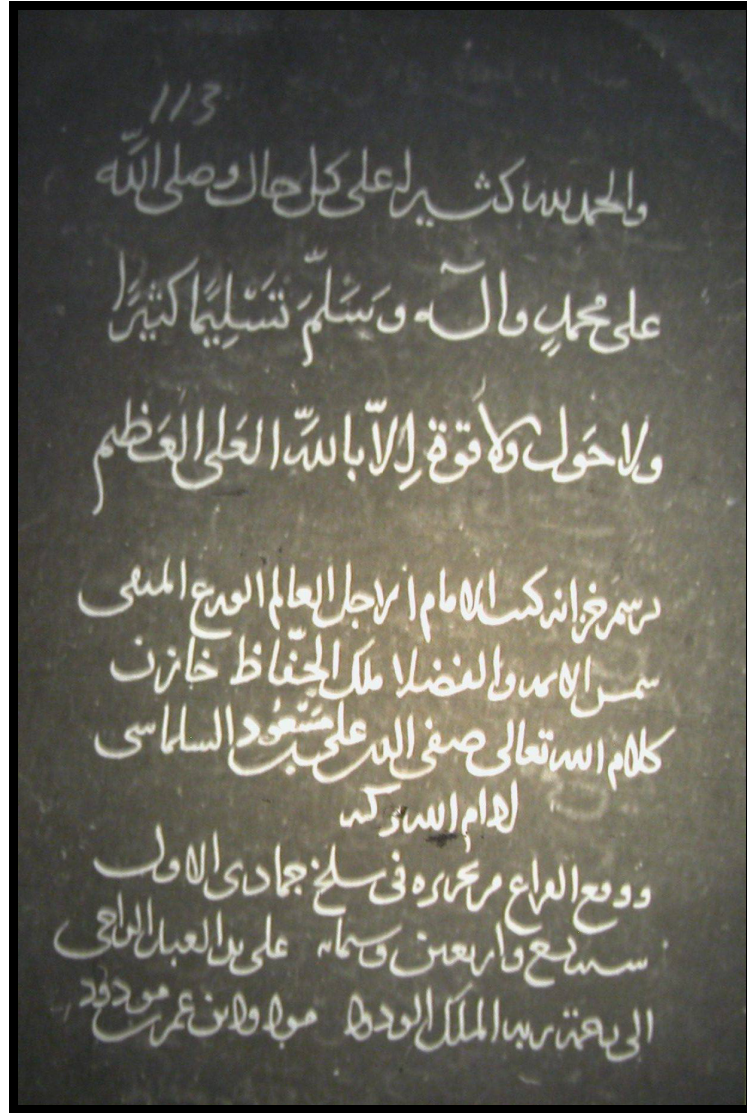 113
والحمد لله كثيرا على كل حال وصلى الله
على محمدٍ وآله وَسَلَّمَ تَسْلِيمًا كثيرًا
ولا حَول ولا قوة إلاّ باللهِّ العَلى العَظيم
برسم خزانه كتب الامام الاجل العالم الورع المتقى
شمس الايمه والفضلا ملك الحفّاظ خازن
كلام الله تعالى صفى الدين على بن مَسْعُود السلماسى
ادام الله بركته
ووقع الفراغ من تحريره فى سلخ جمادى الاول
سنه واربعين وستمايه على يد العبد الراجى
الى رحمة ربه الملك الودود مودود بن عمر بن مودود